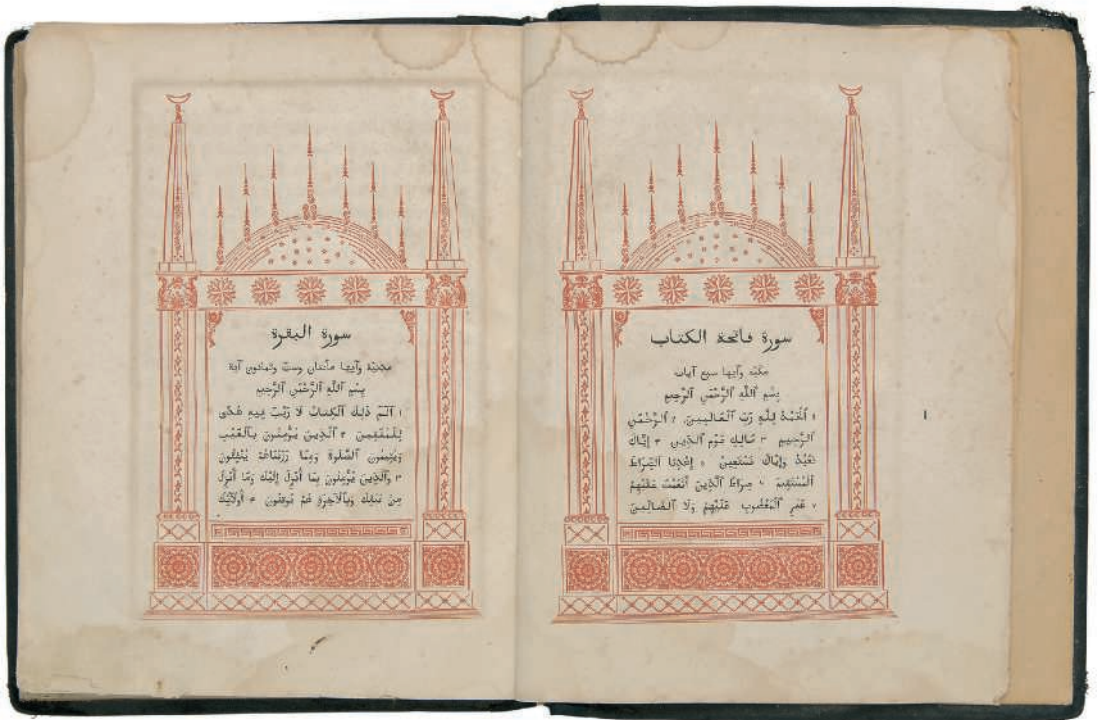 سورة فاتحة الكتاب
مكية وآيها سبع آيات
بِسْمِ ٱللَّهِ ٱلرَّحْمٰنِ ٱلرَّحِيمِ
١ ٱلْحَمْدُ لِلّٰهِ رَبِّ ٱلْعَالَمِينَ ٢ ٱلرَّحْمٰنِ
ٱلرَّحِيمِ ٣ مَالِكِ يَوْمِ ٱلدِّينِ ٤ إِيَّاكَ
نَعْبُدُ وَإِيَّاكَ نَسْتَعِينُ ٥ إِهْدِنَا ٱلصِّرَاطَ
ٱلْمُسْتَقِيمَ ٦ صِرَاطَ ٱلَّذِينَ أَنْعَمْتَ عَلَيْهِمْ
٧ غَيْرِ ٱلْمَغْضُوبِ عَلَيْهِمْ وَلَا ٱلضَّالِّينَ
١
سورة البقرة
مدنيّة وآيها مأتان وستّ وثمانون آية
بِسْمِ ٱللَّهِ ٱلرَّحْمٰنِ ٱلرَّحِيمِ
١ الٓمٓ ذٰلِكَ ٱلْكِتَابُ لَا رَيْبَ فِيهِ هُدًى
لِلْمُتَّقِينَ ٢ ٱلَّذِينَ يُؤْمِنُونَ بِٱلْغَيْبِ
وَيُقِيمُونَ ٱلصَّلٰوةَ وَمِمَّا رَزَقْنَاهُمْ يُنْفِقُونَ
٣ وَٱلَّذِينَ يُؤْمِنُونَ بِمَا أُنْزِلَ إِلَيْكَ وَمَا أُنْزِلَ
مِنْ قَبْلِكَ وَبِٱلْآخِرَةِ هُمْ يُوقِنُونَ ٤ أُولٰٓئِكَ